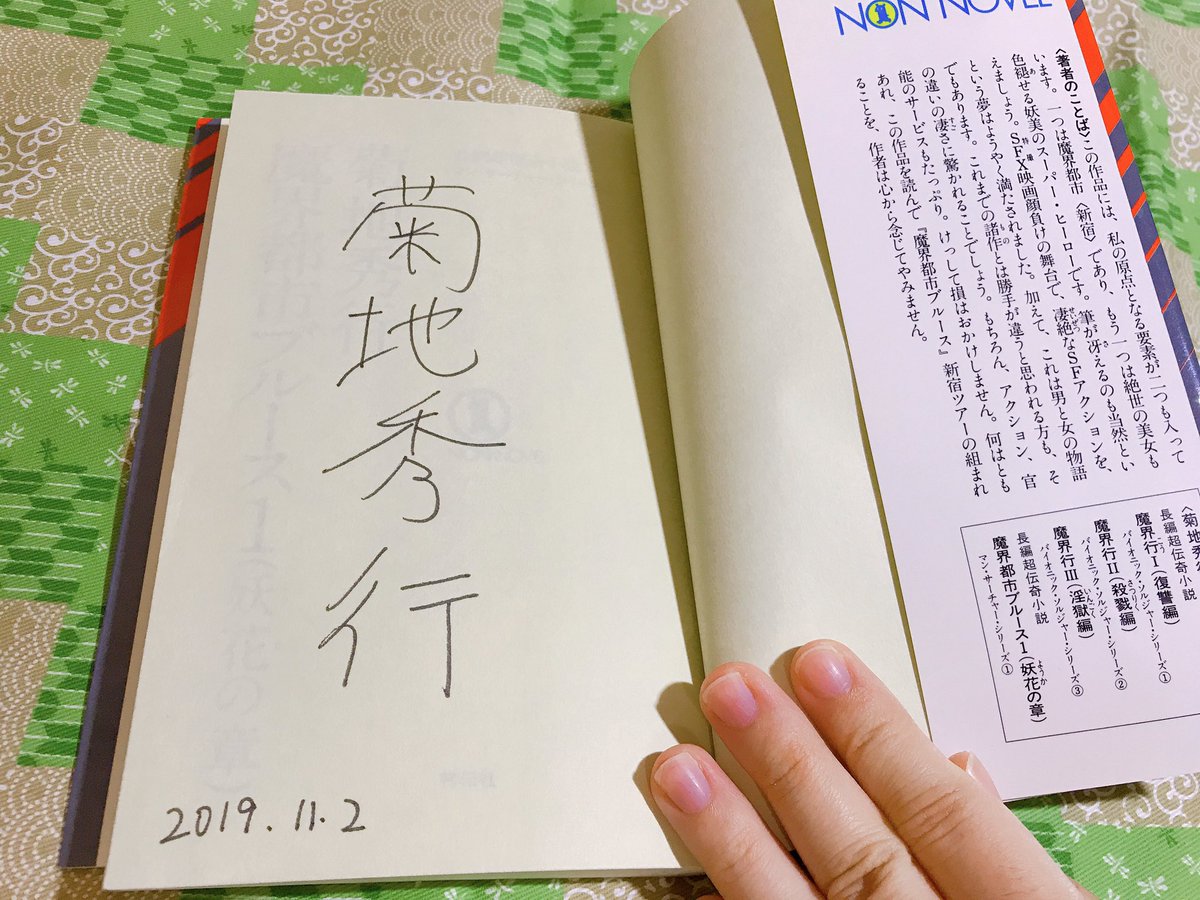 菊地秀行
2019.11.2
NON NOVEL
〈著者のことば〉この作品には、私の原点となる要素が二つも入って
います。一つは魔界都市〈新宿〉であり、もう一つは絶世の美女も
色褪せる妖美のスーパー・ヒーローです。筆が冴えるのも当然とい
えましょう。SFX映画顔負けの舞台で、凄絶なSFアクションを、
という夢はようやく満たされました。加えて、これは男と女の物語
でもあります。これまでの諸作とは勝手が違うと思われる方も、そ
の違いの凄さに驚かれることでしょう。もちろん、アクション、官
能のサービスもたっぷり。けっして損はおかけしません。何はとも
あれ、この作品を読んで『魔界都市ブルース』新宿ツアーの組まれ
ることを、作者は心から念じてやみません。
〈菊地秀行
長編超伝奇小説
魔界行Ⅰ(復讐編)
バイオニック・ソルジャー・シリーズ①
魔界行Ⅱ(殺戮編)
バイオニック・ソルジャー・シリーズ②
魔界行Ⅲ(淫獄編)
バイオニック・ソルジャー・シリーズ③
長編超伝奇小説
魔界都市ブルース1(妖花の章)
マン・サーチャー・シリーズ①